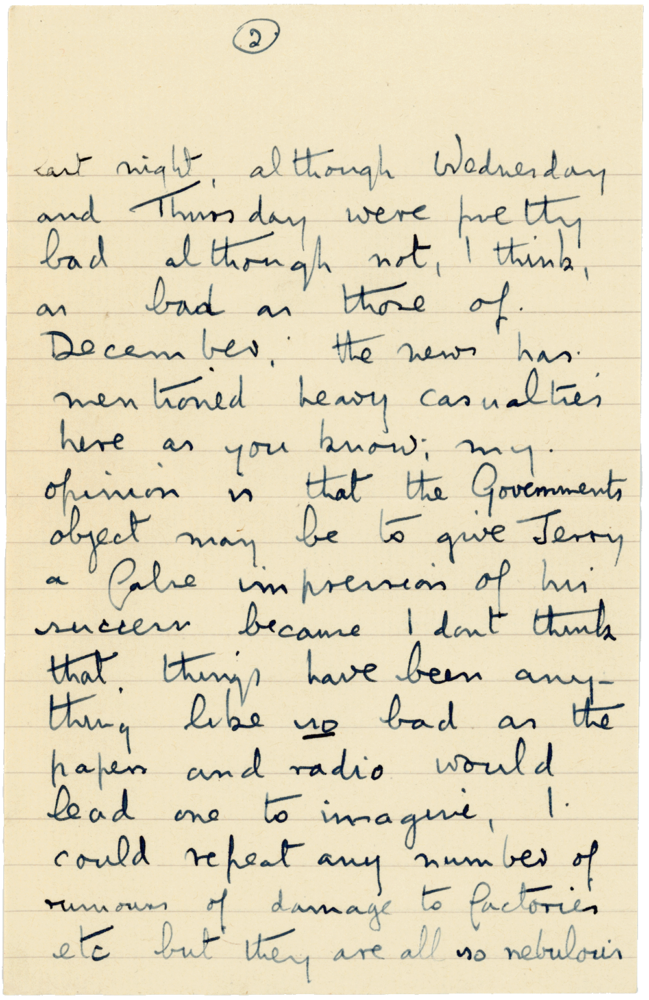 2
last night, although Wednesday
and Thursday were pretty
bad although not, I think,
as bad as those of
December; the news has
mentioned heavy casualties
here as you know; my
opinion is that the Governments
object may be to give Jerry
a false impression of his
success because I dont think
that things have been any-
thing like so bad as the
papers and radio would
lead one to imagine, I
could repeat any number of
rumours of damage to factories
etc but they are all so nebulous